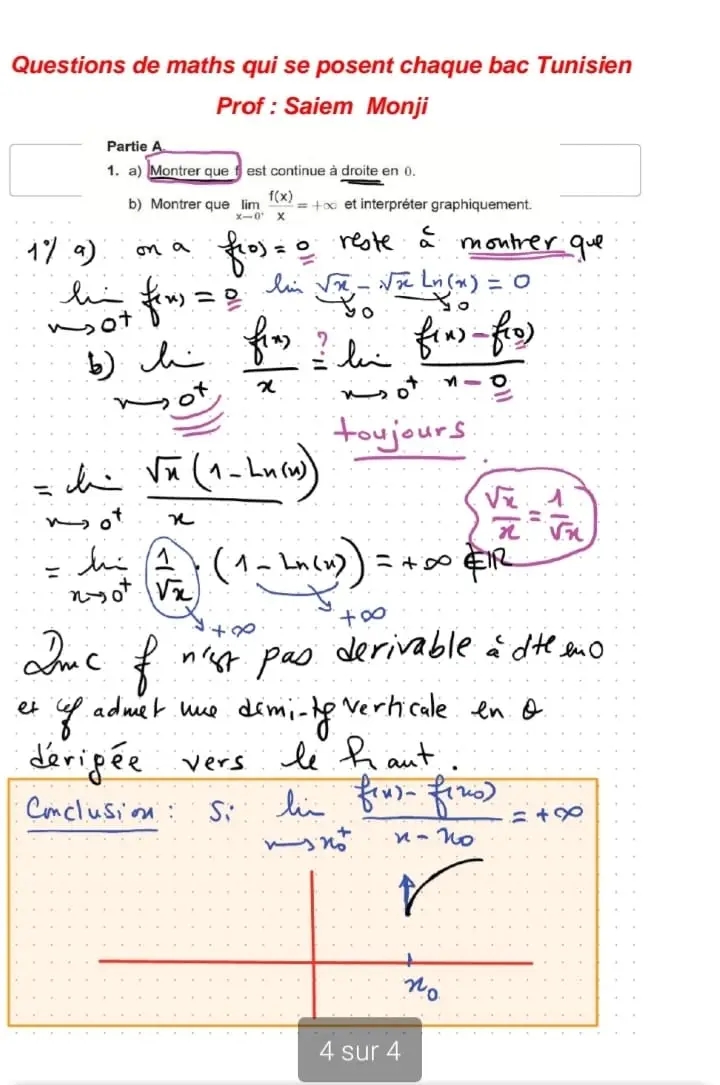 Questions de maths qui se posent chaque bac Tunisien
Prof : Saiem Monji
Partie A.
1. a) Montrer que f est continue à droite en 0.
b) Montrer que lim x→0⁺ f(x)/x = +∞ et interpréter graphiquement.
1°/ a) on a f(0) = 0 reste à montrer que
lim x→0⁺ f(x) = 0 lim √x - √x Ln(x) = 0
→0 →0
b) lim x→0⁺ f(x)/x ?= lim x→0⁺ (f(x) - f(0))/(x - 0)
toujours
= lim x→0⁺ √x (1 - Ln(x))/x
√x/x = 1/√x
= lim x→0⁺ 1/√x . (1 - Ln(x)) = +∞ ∉ IR
→+∞ →+∞
Donc f n'est pas derivable à dte en 0
et Cf admet une demi-tg verticale en 0
dérigée vers le haut.
Conclusion : Si lim x→x₀⁺ (f(x) - f(x₀))/(x - x₀) = +∞
x₀
4 sur 4